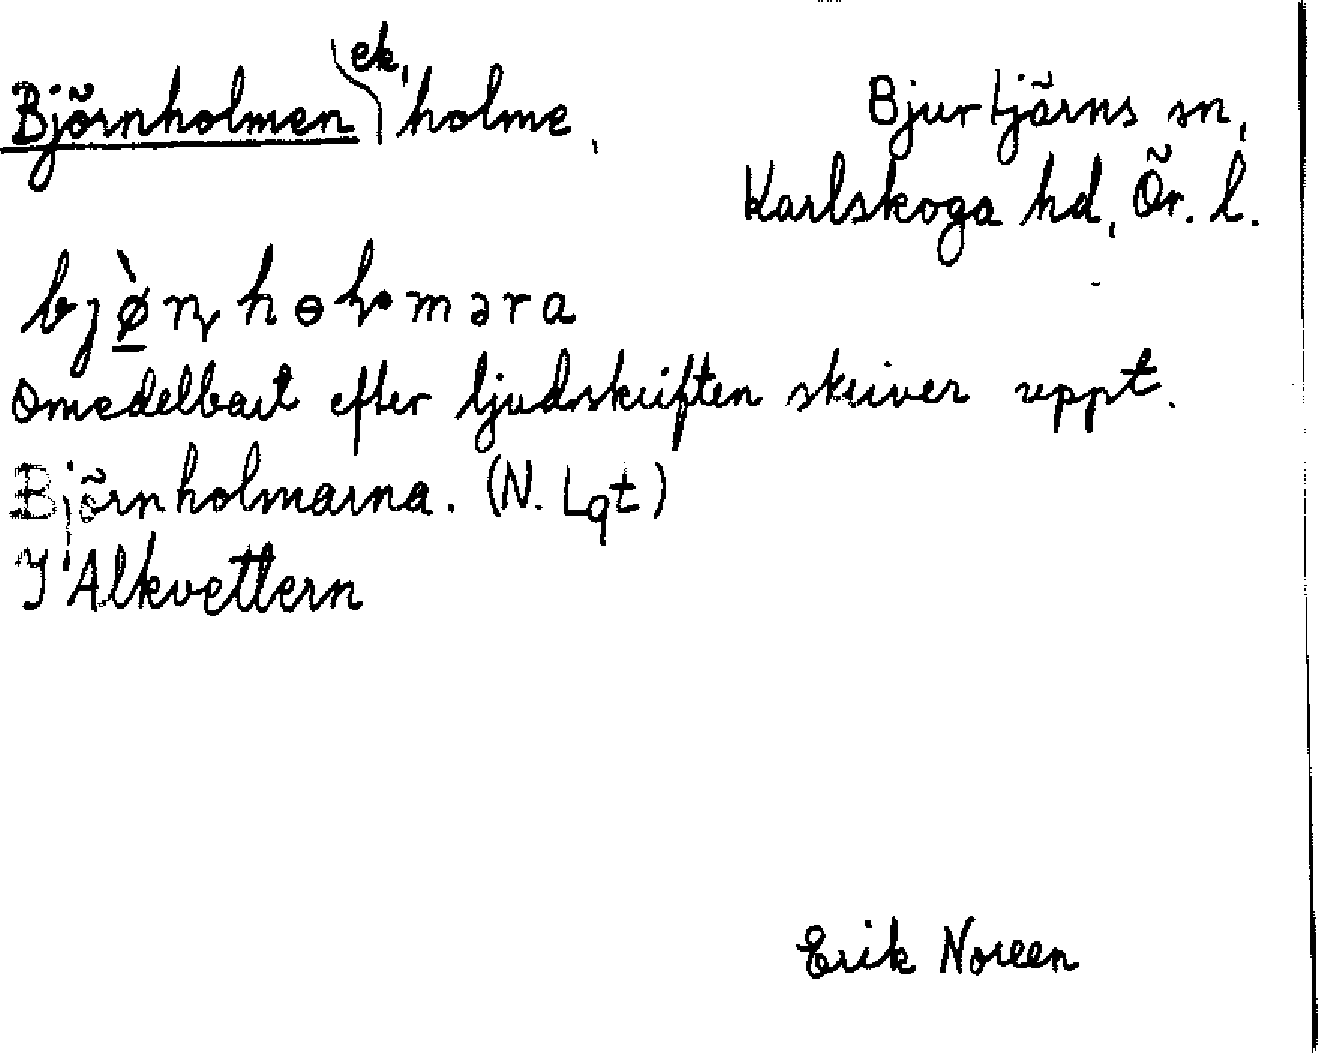 Björnholmen ek, holme,
Bjurtjärns sn,
Karlskoga hd, Ör. l.
bjø̱̀ɳhɵɫməra
Omedelbart efter ljudskriften skriver uppt.
Björnholmarna. (N. Lqt)
I Alkvettern
Erik Noreen